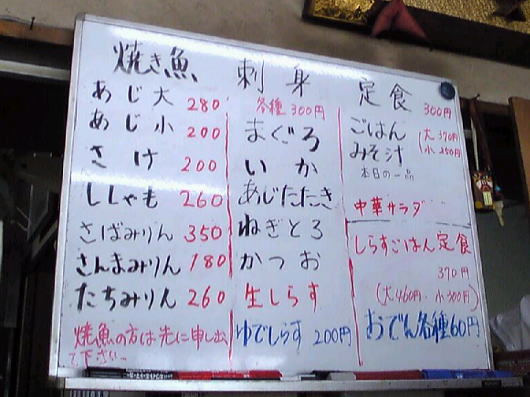 焼き魚
あじ大 280
あじ小 200
さけ 200
ししゃも 260
さばみりん 350
さんまみりん 180
たちみりん 260
焼魚の方は先に申し出
て下さい
刺身
各種300円
まぐろ
いか
あじたたき
ねぎとろ
かつお
生しらす
ゆでしらす 200円
定食
300円
ごはん
みそ汁
(大370円
小250円
本日の一品
中華サラダ
しらすごはん定食
370円
(大460円・小300円)
おでん各種60円